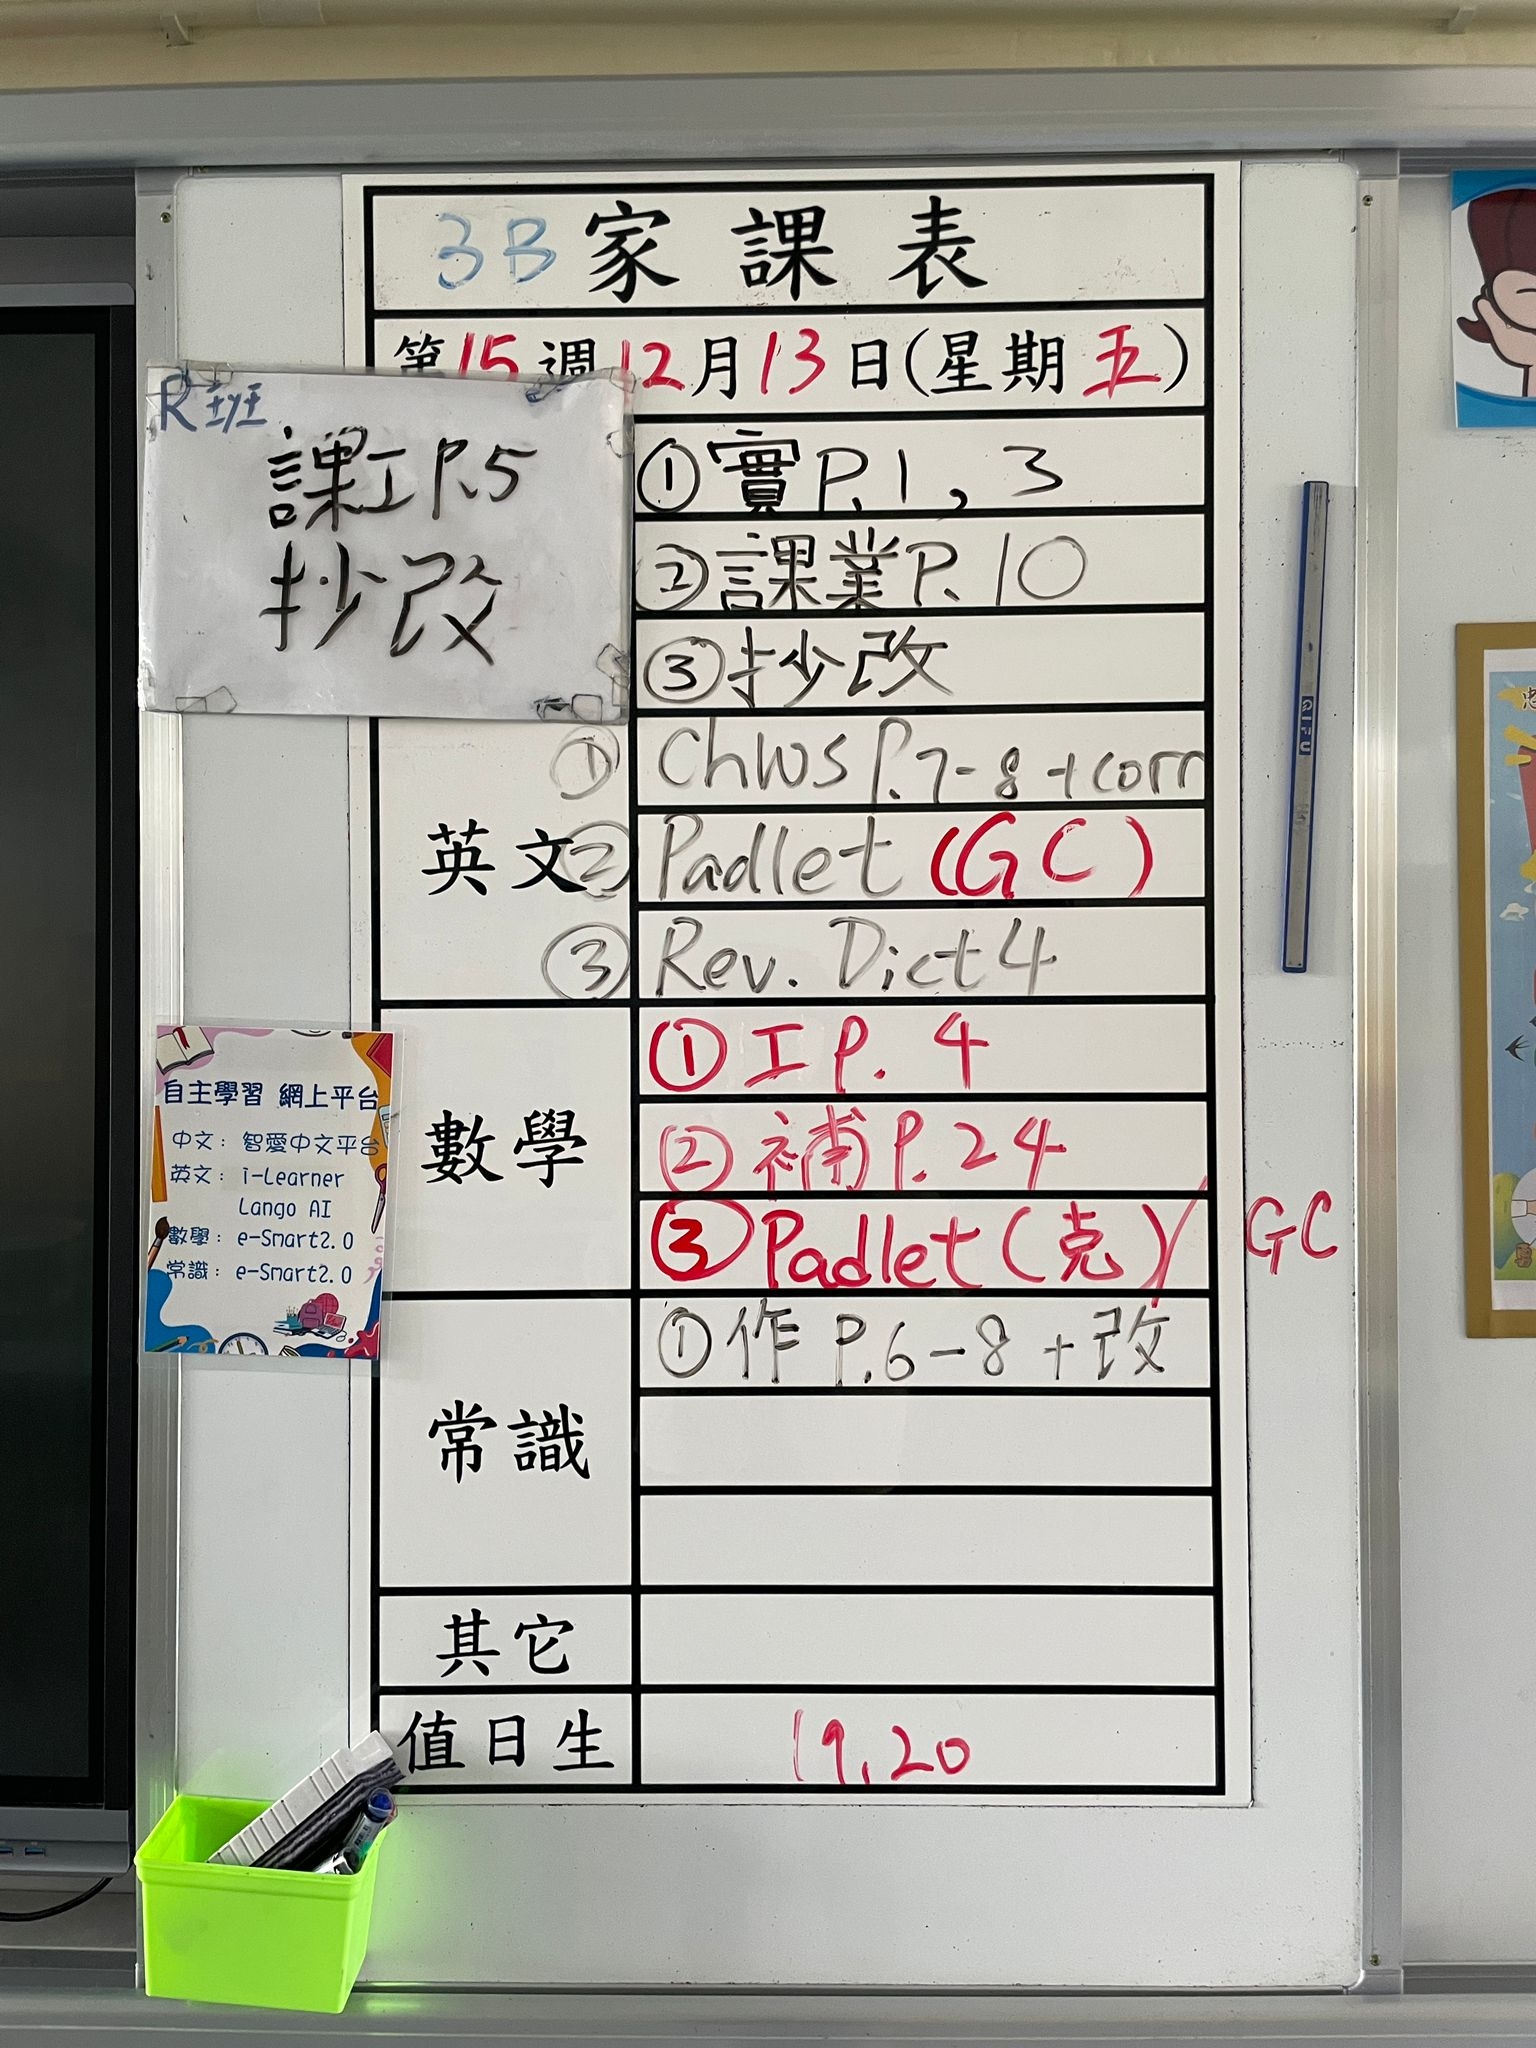 3B 家課表
第15週12月13日(星期五)
R班
課工P.5
抄改
①實P.1,3
②課業P.10
③抄改
英文
① Chws P.7-8 + corr
② Padlet (GC)
③ Rev. Dict 4
數學
①工P.4
②補P.24
③Padlet(克)/ GC
常識
①作P.6-8+改
其它
值日生
19,20
自主學習 網上平台
中文: 智愛中文平台
英文: i-Learner
Lango AI
數學: e-Smart2.0
常識: e-Smart2.0